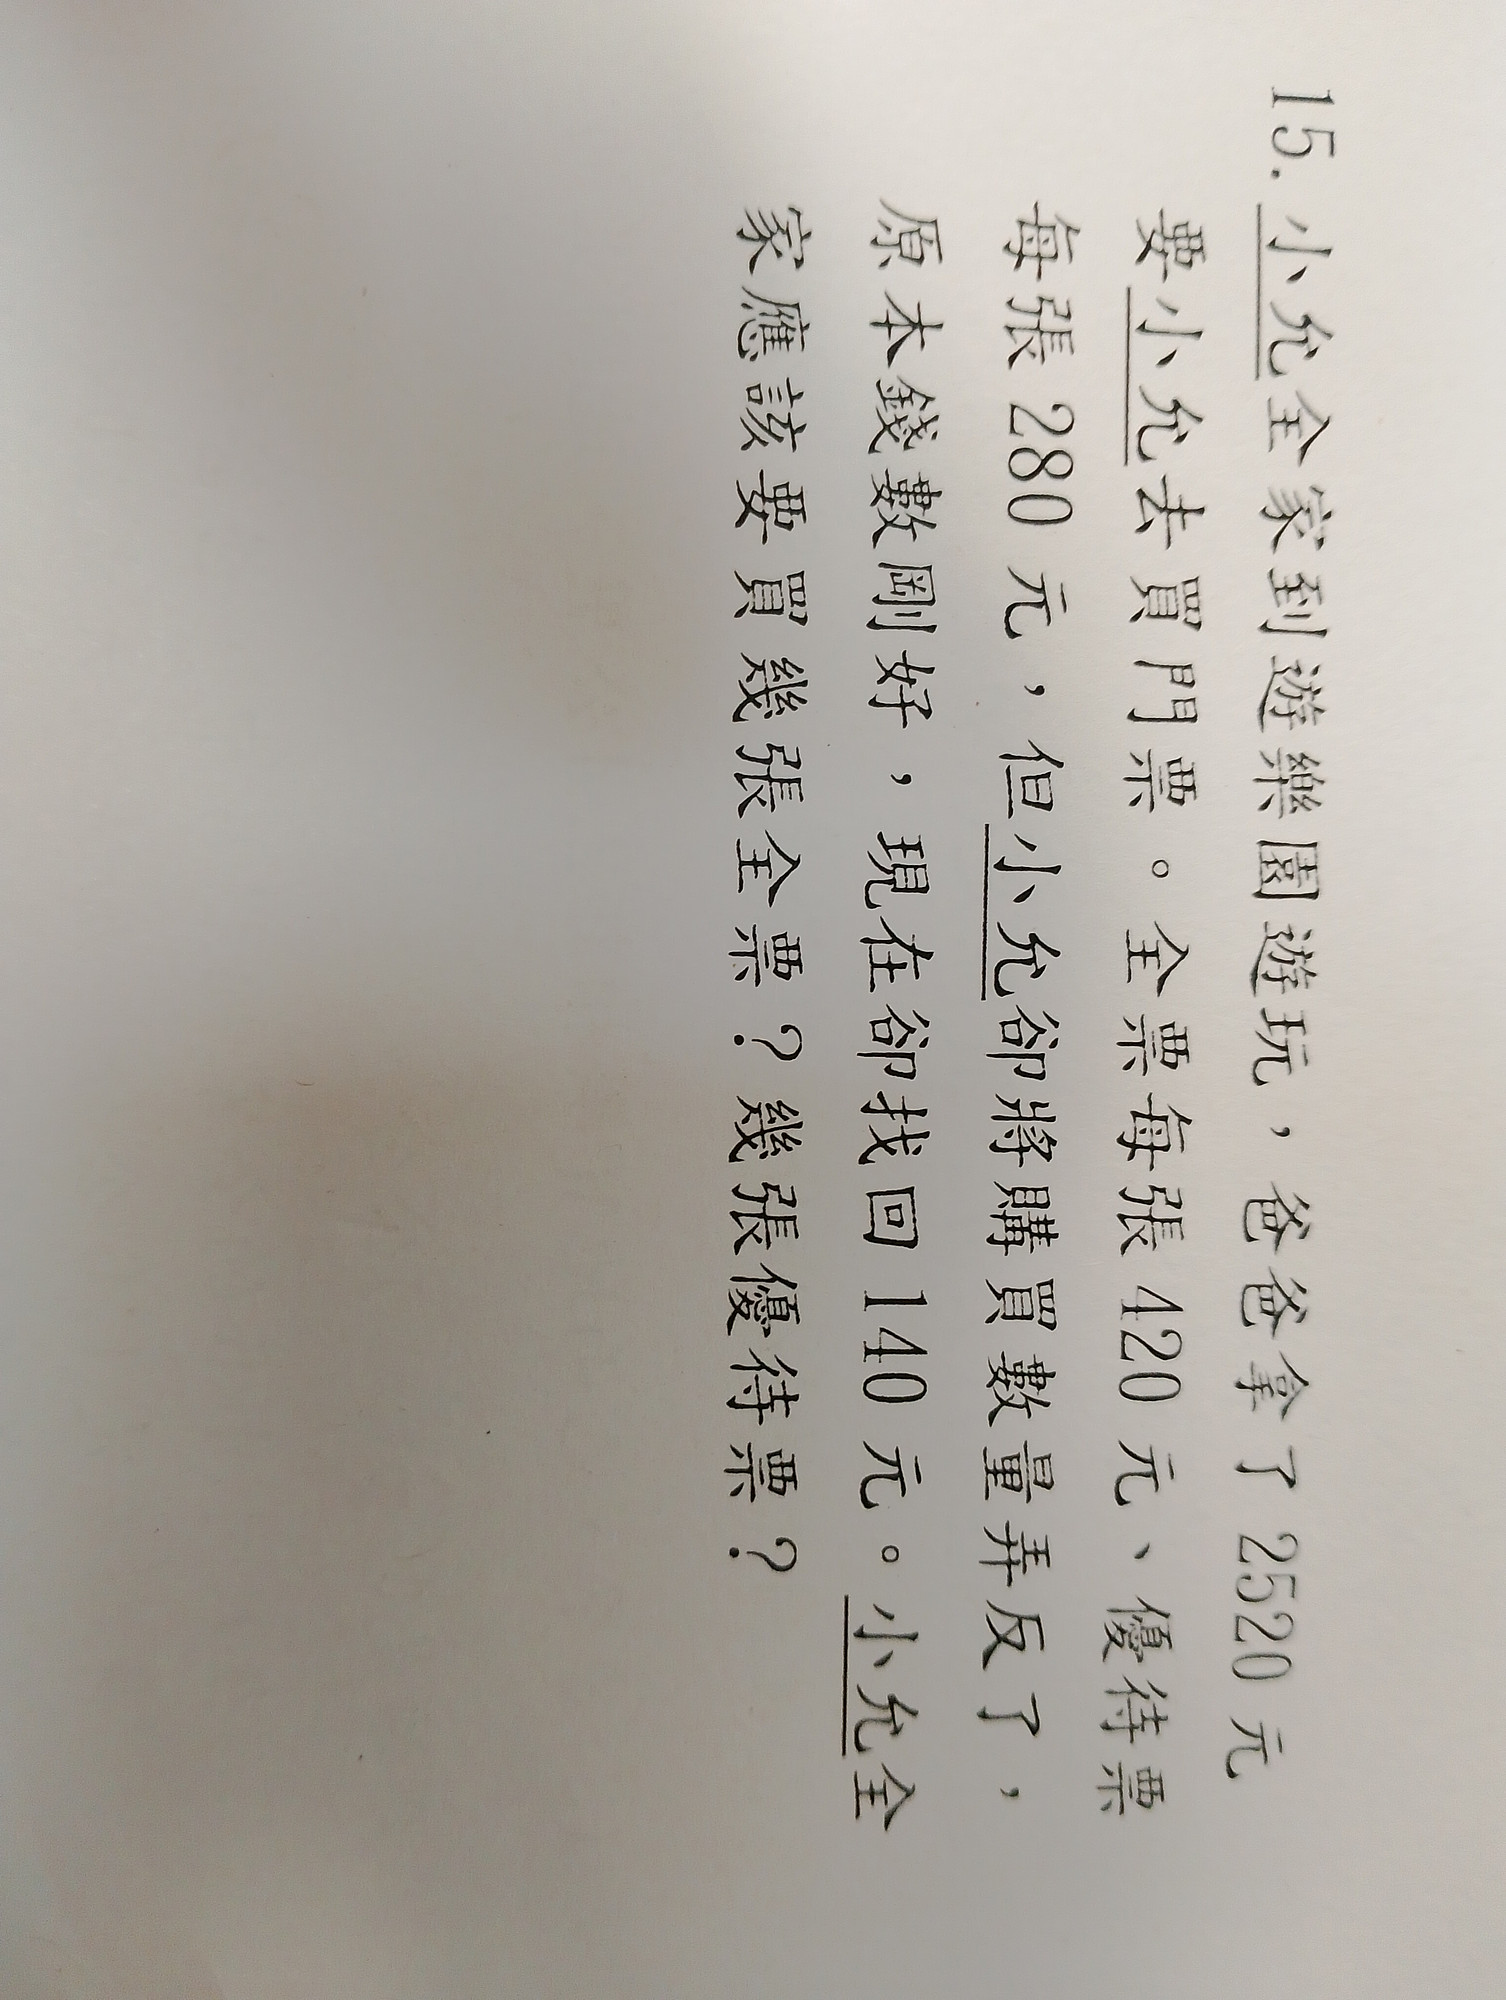 15. 小允全家到遊樂園遊玩，爸爸拿了 2520 元
要小允去買門票。全票每張 420 元、優待票
每張 280 元，但小允卻將購買數量弄反了，
原本錢數剛好，現在卻找回 140 元。小允全
家應該要買幾張全票？幾張優待票？